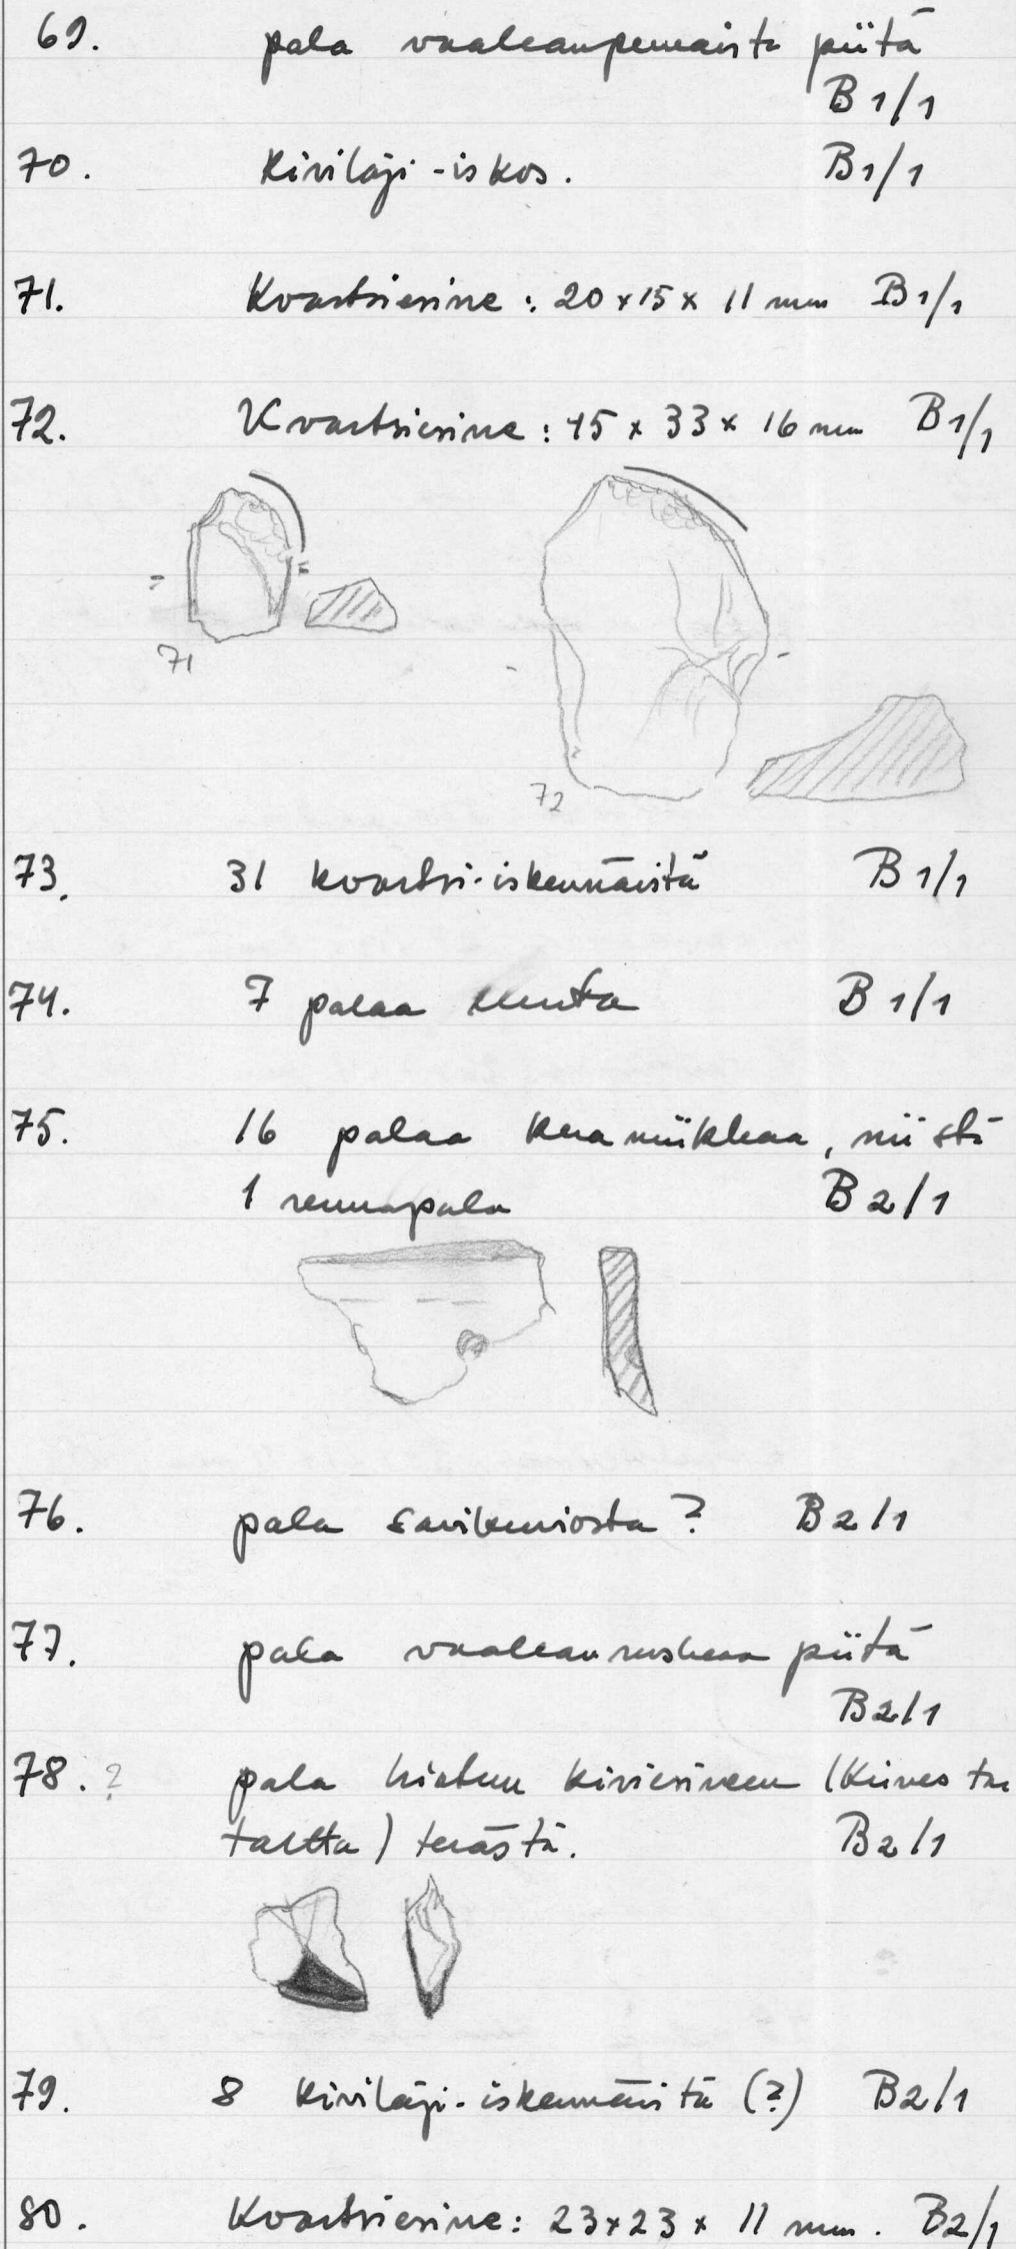 69. pala vaaleanpunaista piitä
B1/1
70. Kivilaji-iskos. B1/1
71. Kvartsiesine: 20x15x 11 mm B1/1
72. Kvartsiesine: 45 x 33x 16 mm B1/1
71
72
73. 31 kvartsi-iskennäistä B1/1
74. 7 palaa luuta B1/1
75. 16 palaa keramiikkaa, niistä
1 reunapala B2/1
76. pala savikiviosta? B2/1
77. pala vaaleanruskeaa piitä
B2/1
78. ? pala hiotun kiviesineen (Kives tai
taltta) terästä. B2/1
79. 8 Kivilaji-iskennäistä (?) B2/1
80. Kvartsiesine: 23x23x 11 mm. B2/1